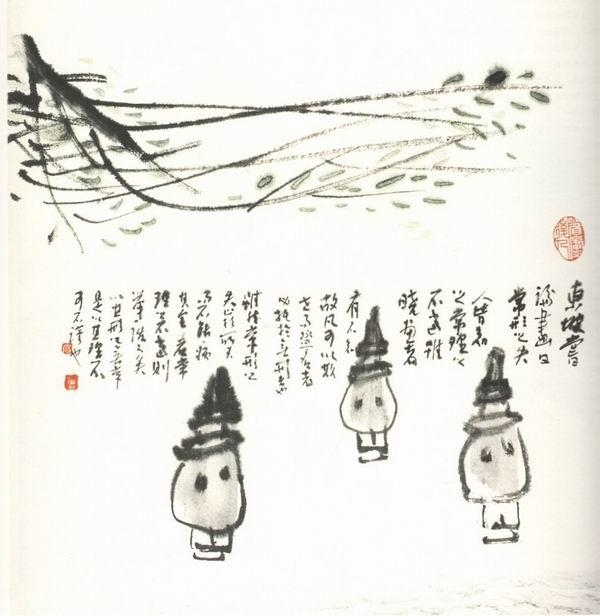 東坡嘗
論畫曰
常形之失
人皆知
之常理之
不當雖
曉畫者
有不知
故凡可以欺
世而取名者
必托於無形者也
雖然常形之
失止於所失
而不能病
其全若常
理之不當則
舉廢之矣
以其形之無常
是以其理不
可不謹也